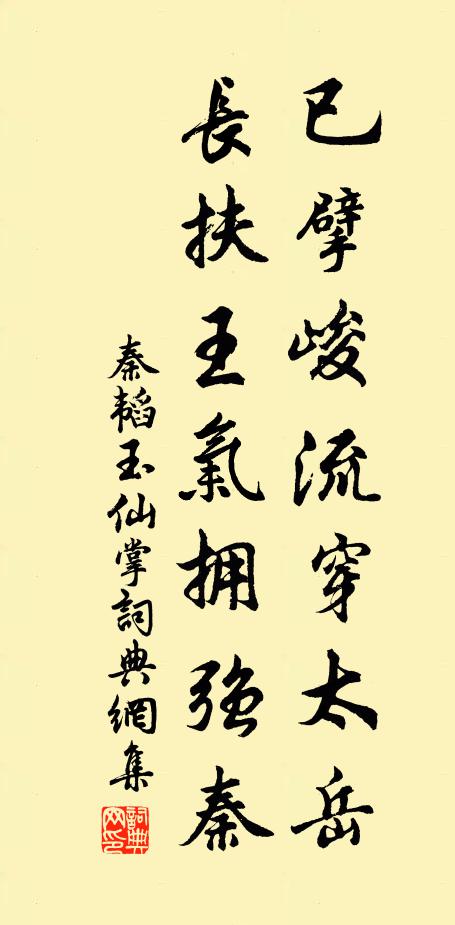 已擘峻流穿太岳
長扶王氣拥强秦
秦韬玉仙掌詞典網集
詞典網印